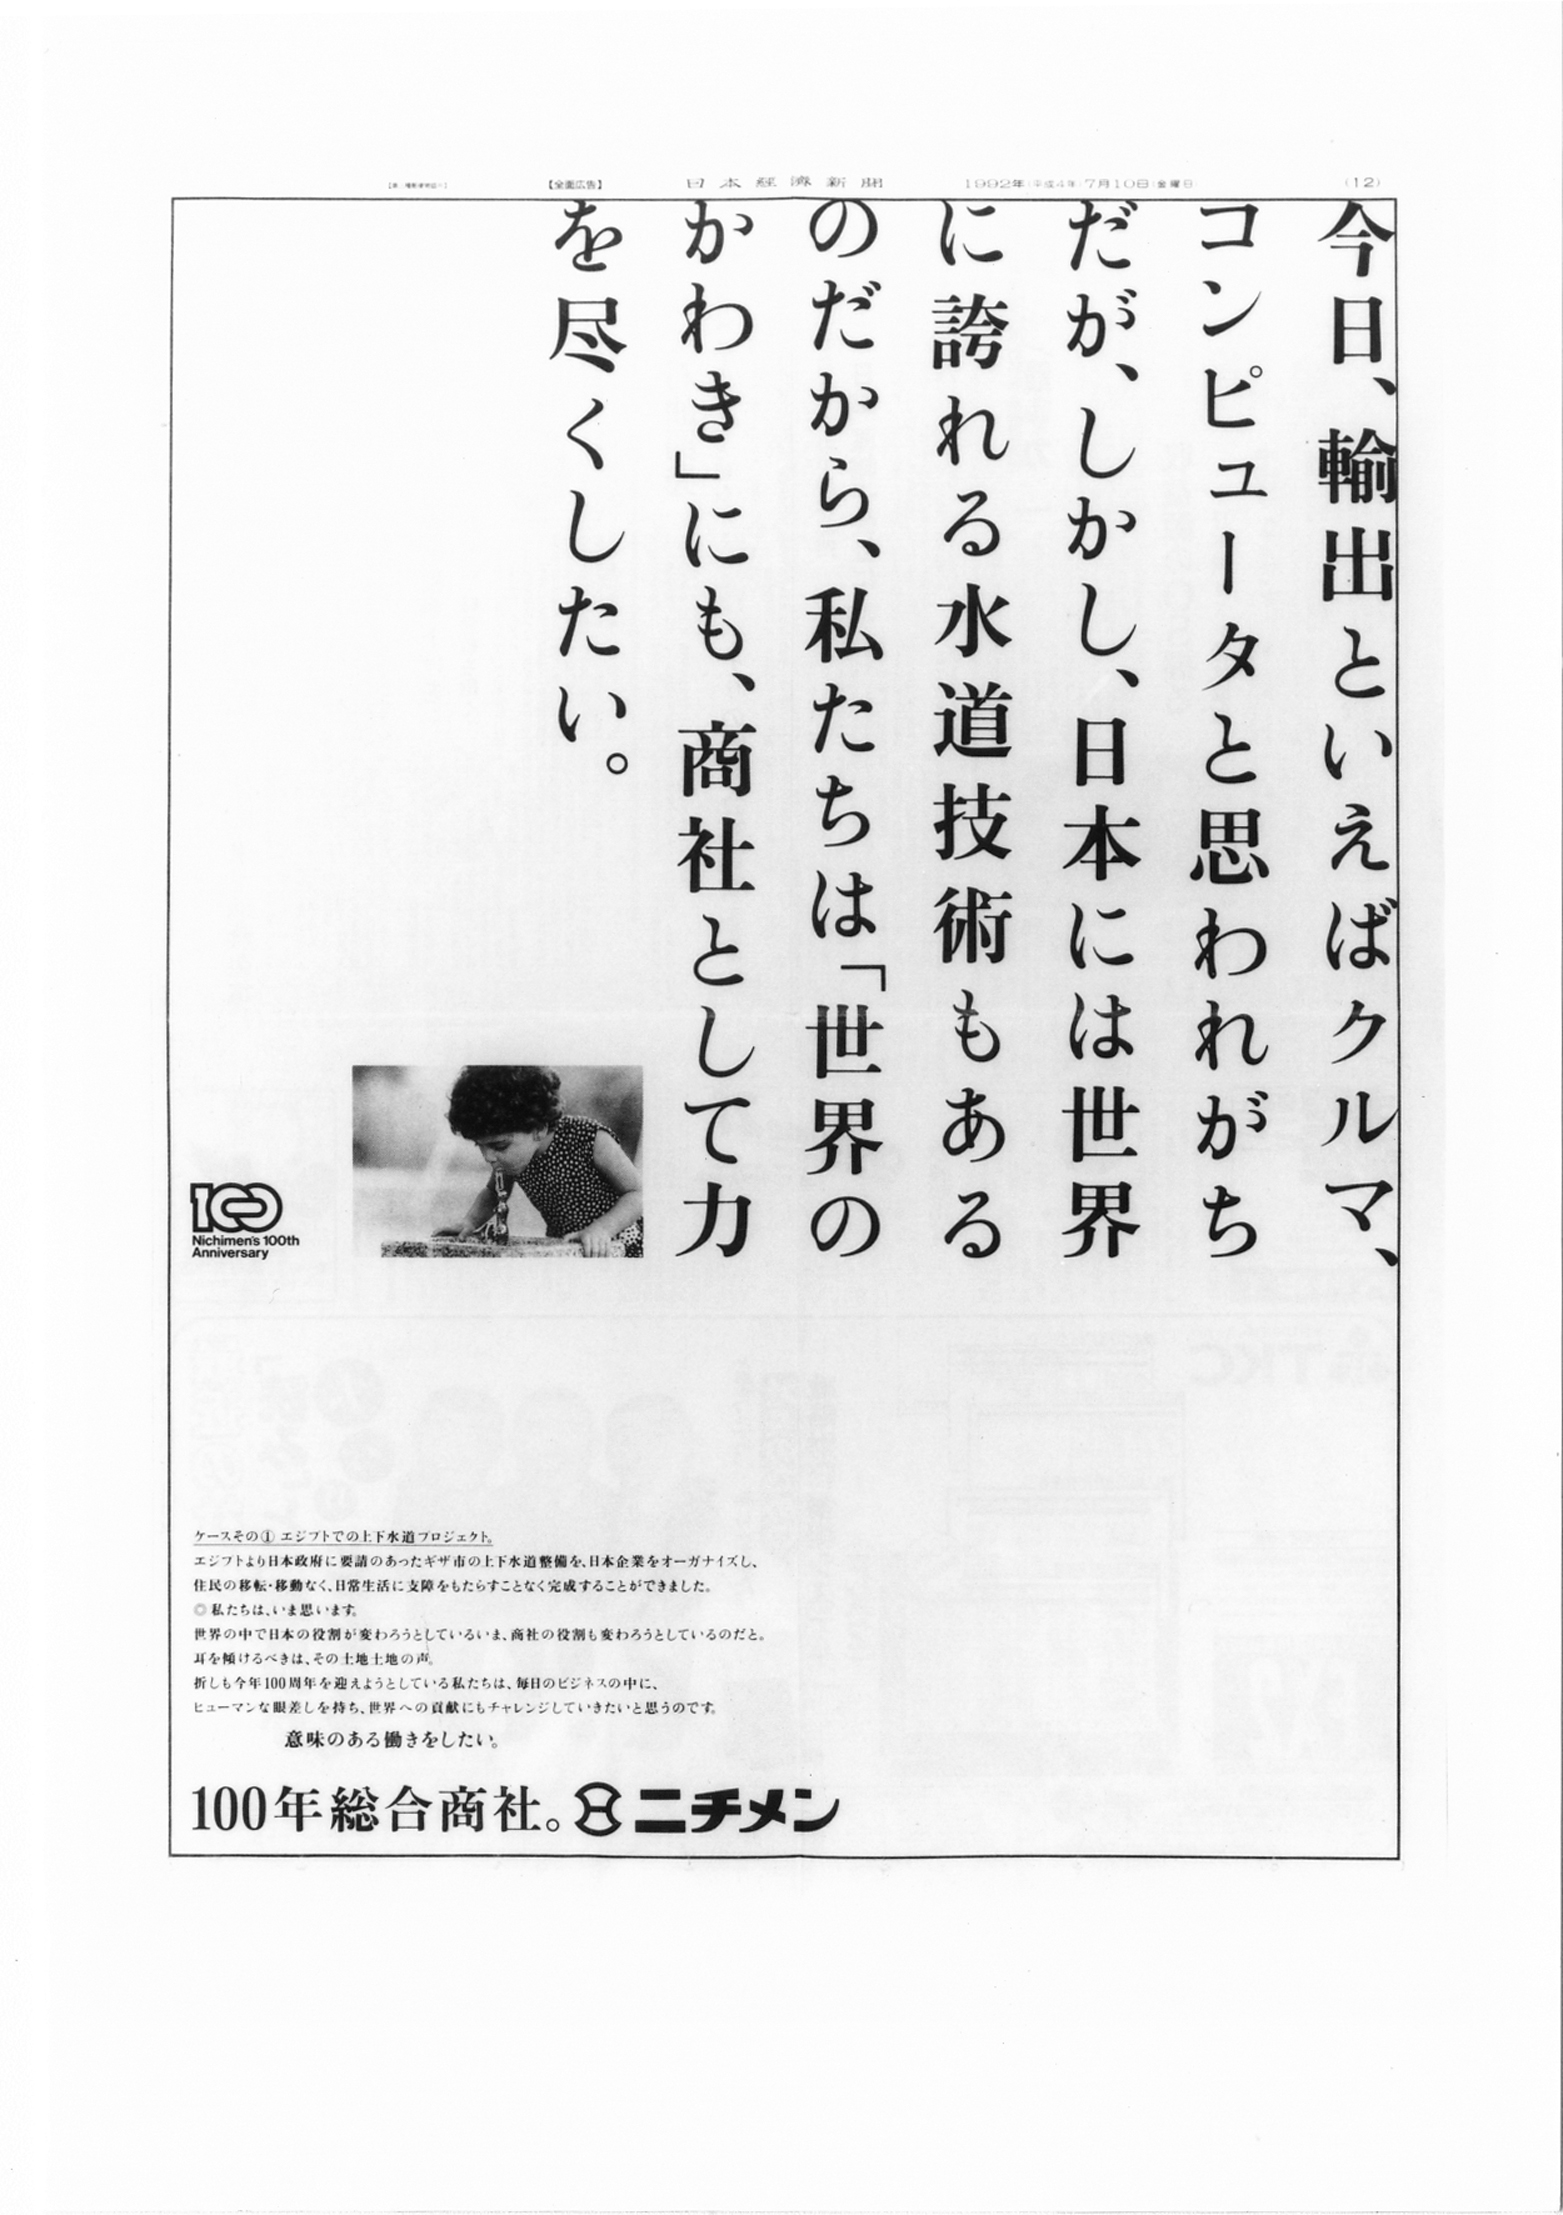 【全面広告】
日本経済新聞
1992年(平成4年)7月10日(金曜日)
(12)
今日、輸出といえばクルマ、
コンピュータと思われがち
だが、しかし、日本には世界
に誇れる水道技術もある
のだから、私たちは「世界の
かわき」にも、商社として力
を尽くしたい。
100
Nichimen's 100th
Anniversary
ケースその① エジプトでの上下水道プロジェクト。
エジプトより日本政府に要請のあったギザ市の上下水道整備を、日本企業をオーガナイズし、
住民の移転・移動なく、日常生活に支障をもたらすことなく完成することができました。
◎私たちは、いま思います。
世界の中で日本の役割が変わろうとしているいま、商社の役割も変わろうとしているのだと。
耳を傾けるべきは、その土地土地の声。
折しも今年100周年を迎えようとしている私たちは、毎日のビジネスの中に、
ヒューマンな眼差しを持ち、世界への貢献にもチャレンジしていきたいと思うのです。
意味のある働きをしたい。
100年総合商社。ニチメン